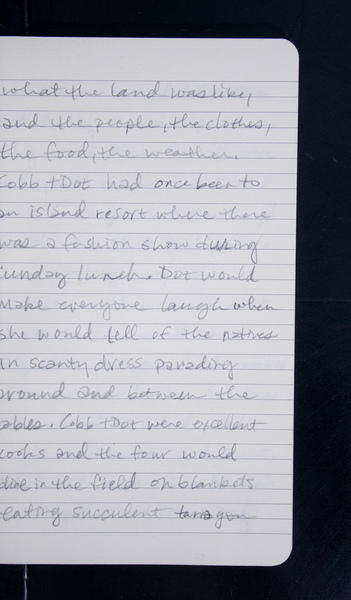 what the land was like,
and the people, the clothes,
the food, the weather.
Cobb + Dot had once been to
an island resort where there
was a fashion show during
unday lunch. Dot would
make everyone laugh when
she would tell of the natives
in scanty dress parading
around and between the
ables. Cobb + Dot were excellent
cooks and the four would
dine in the field on blankets
eating succulent tarragon